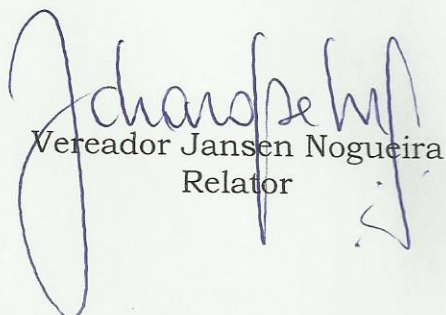 Vereador Jansen Nogueira
Relator